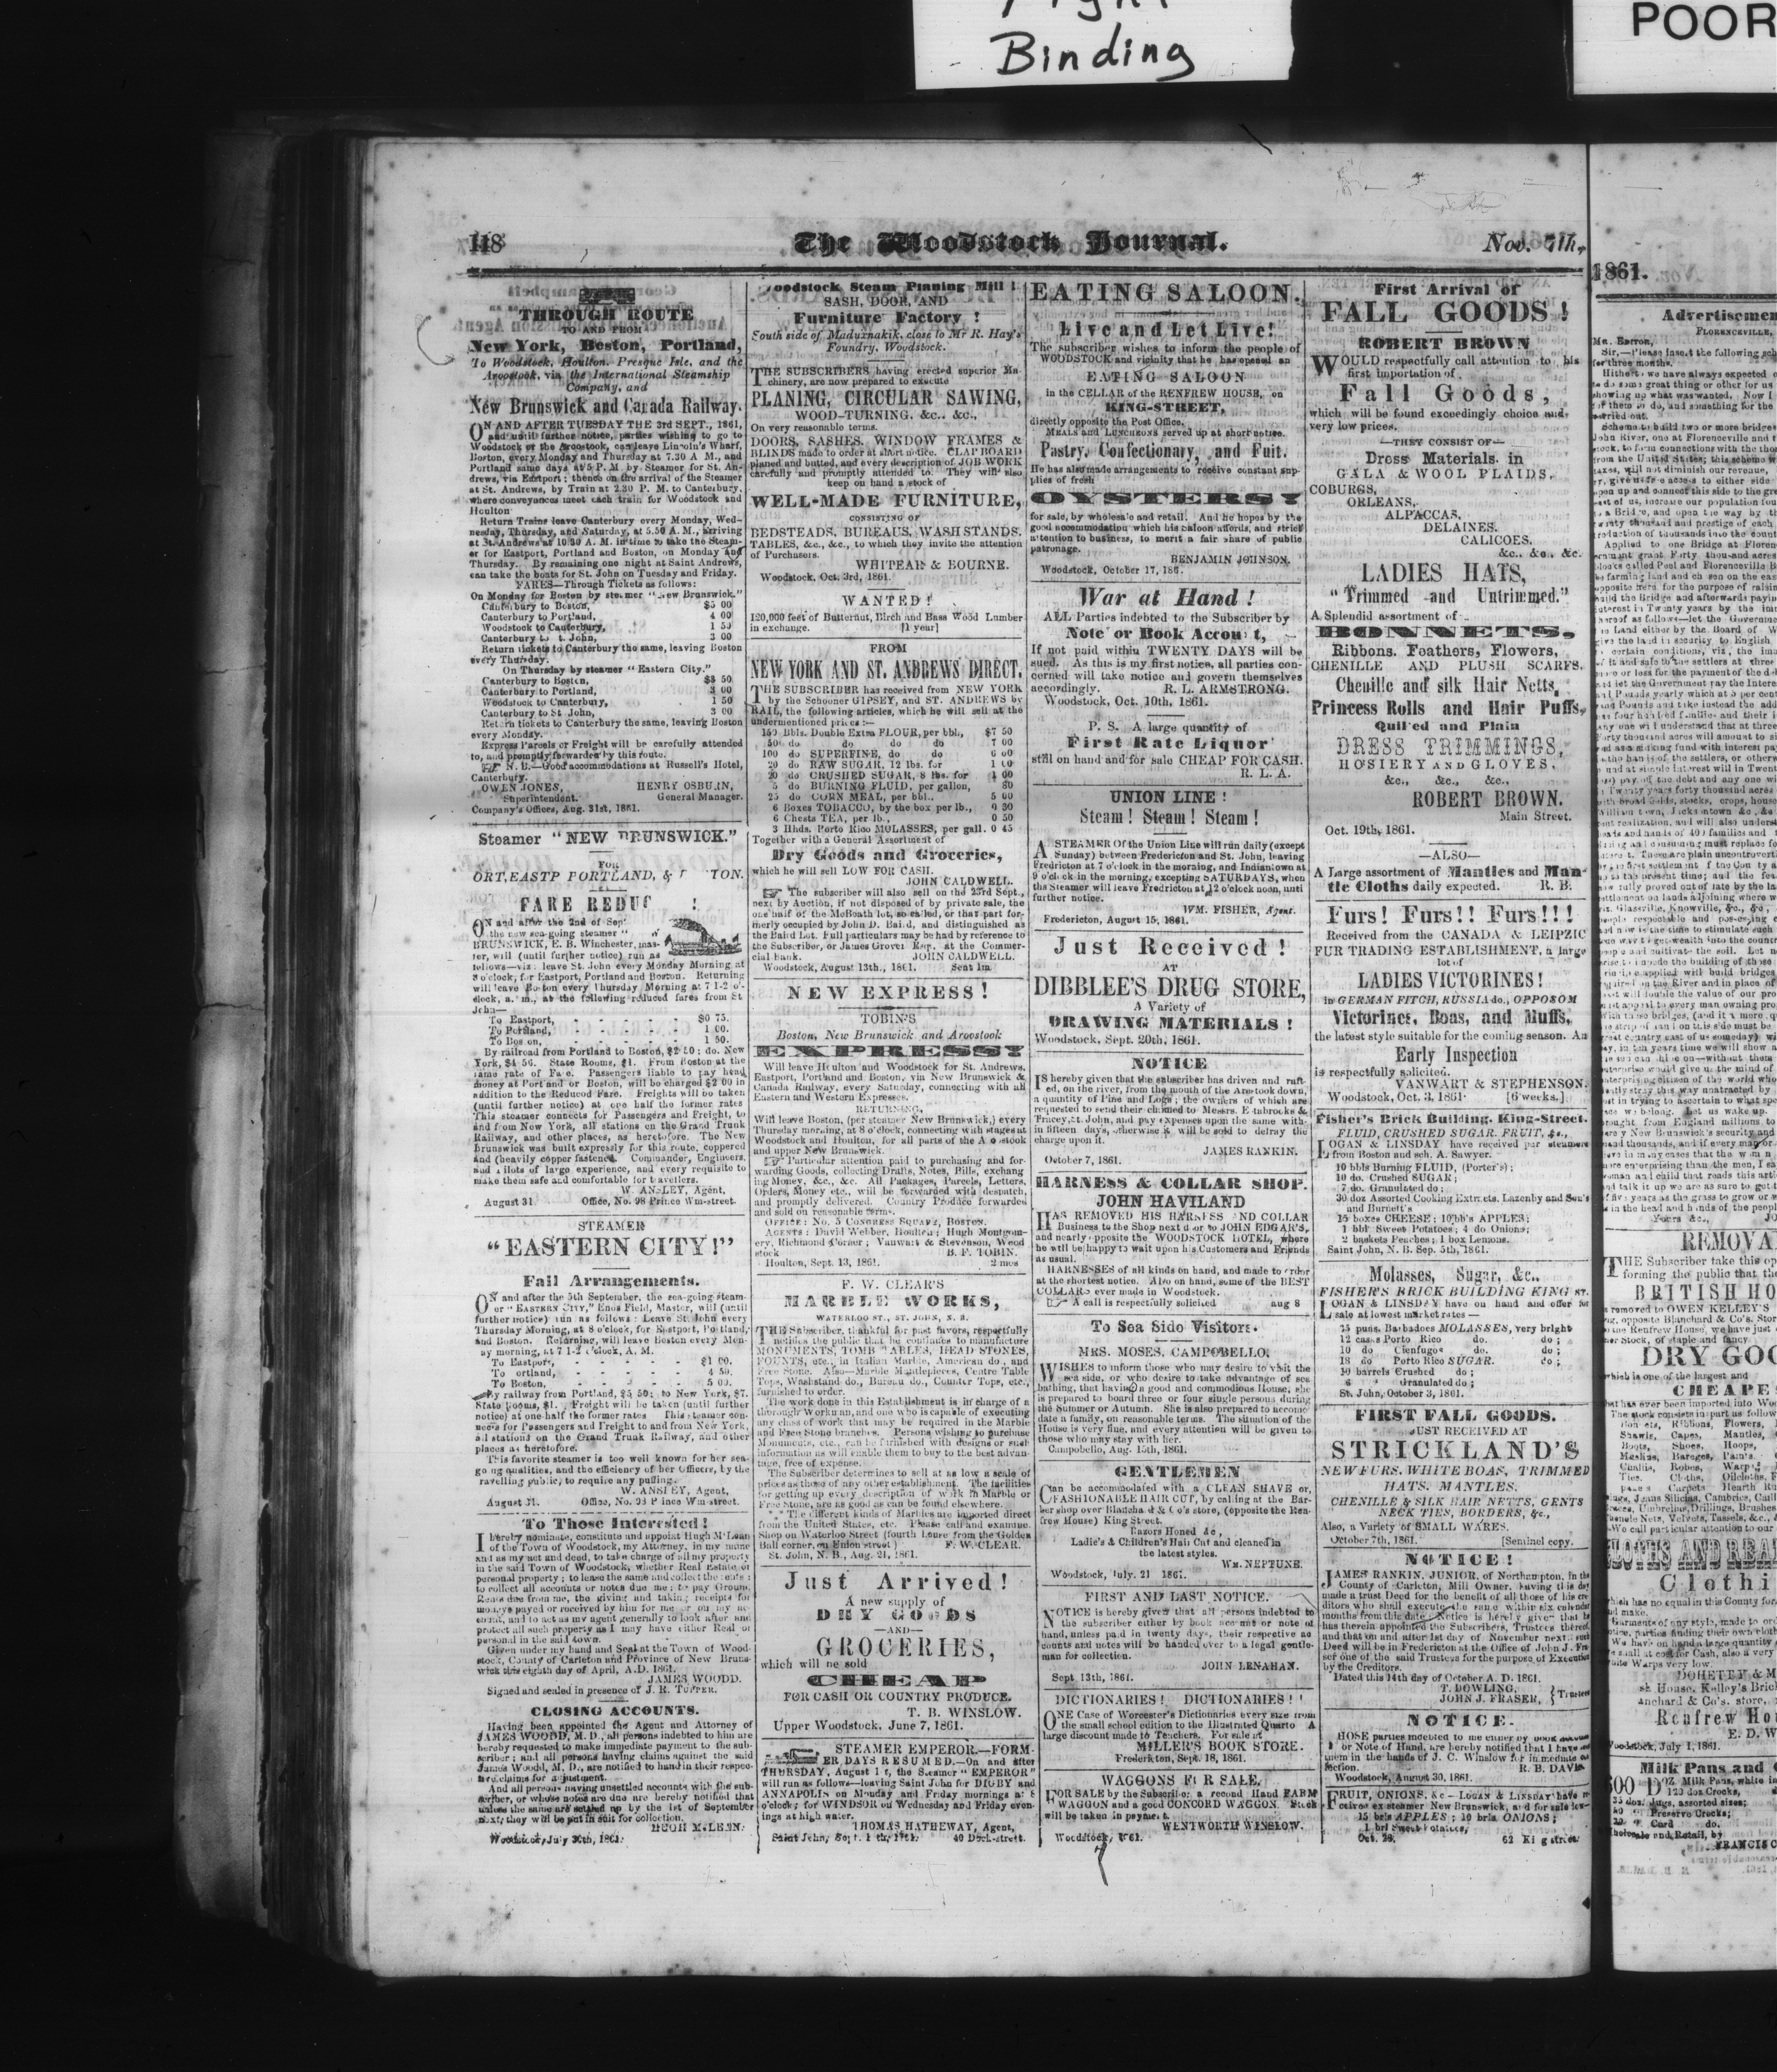 Binding
POOR
118
The Woodstock Journal.
Nov. 7th,
THROUGH ROUTE
TO AND FROM
New York, Boston, Portland,
To Woodstock, Houlton, Presque Isle, and the
Aroostook, via the International Steamship
Company, and
New Brunswick and Canada Railway.
ON AND AFTER TUESDAY THE 3rd SEPT., 1861,
and until further notice, parties wishing to go to
Woodstock or the Aroostook, can leave Lincoln's Wharf,
Boston, every Monday and Thursday at 7.30 A. M., and
Portland same days at 5 P. M. by Steamer for St. An-
drews, via Eastport; thence on the arrival of the Steamer
at St. Andrews, by Train at 2.30 P. M. to Canterbury,
where conveyances meet each train for Woodstock and
Houlton
Return Trains leave Canterbury every Monday, Wed-
nesday, Thursday, and Saturday, at 5.50 A. M., arriving
at St. Andrews at 10 30 A. M. in time to take the Steam-
er for Eastport, Portland and Boston, on Monday and
Thursday. By remaining one night at Saint Andrews,
can take the boats for St. John on Tuesday and Friday.
FARES—Through Tickets as follows:
On Monday for Boston by steamer "New Brunswick."
Canterbury to Boston, $5 00
Canterbury to Portland, 4 00
Woodstock to Canterbury, 1 50
Canterbury to St. John, 3 00
Return tickets to Canterbury the same, leaving Boston
every Thursday.
On Thursday by steamer "Eastern City."
Canterbury to Boston, $3 50
Canterbury to Portland, 3 00
Woodstock to Canterbury, 1 50
Canterbury to St John, 3 00
Return tickets to Canterbury the same, leaving Boston
every Monday.
Express Parcels or Freight will be carefully attended
to, and promptly forwarded by this route.
N. B.—Good accommodations at Russell's Hotel,
Canterbury.
OWEN JONES, HENRY OSBURN,
Superintendent. General Manager.
Company's Offices, Aug. 31st, 1861.
Steamer "NEW BRUNSWICK."
FOR
PORTLAND, &
FARE
ON and after the 2nd of Sep
the new sea-going steamer "
BRUNSWICK, E. B. Winchester, mas-
ter, will (until further notice) run as
follows—viz: leave St. John every Monday Morning at
8 o'clock, for Eastport, Portland and Boston. Returning
will leave Boston every Thursday Morning at 7 1-2 o'-
clock, a. m., at the following reduced fares from St
John—
To Eastport, - - - - - $0 75.
To Portland, - - - - - 1 00.
To Boston, - - - - - 1 50.
By railroad from Portland to Boston, $2 50; do. New
York, $4 50. State Rooms, $1. From Boston at the
same rate of Fare. Passengers liable to pay head
money at Portland or Boston, will be charged $2 00 in
addition to the Reduced Fare. Freights will be taken
(until further notice) at one half the former rates
This steamer connects for Passengers and Freight, to
and from New York, all stations on the Grand Trunk
Railway, and other places, as heretofore. The New
Brunswick was built expressly for this route, coppered
and (heavily copper fastened. Commander, Engineers,
and Pilots of large experience, and every requisite to
make them safe and comfortable for travellers.
W. ANSLEY, Agent,
August 31 Office, No. 98 Prince Wm-street.
STEAMER
"EASTERN CITY!"
Fall Arrangements.
ON and after the 5th September, the sea-going steam-
er "EASTERN CITY," Enos Field, Master, will (until
further notice) run as follows: Leave St. John every
Thursday Morning, at 8 o'clock, for Eastport, Portland,
and Boston. Returning, will leave Boston every Mon-
day morning, at 7 1-2 o'clock, A. M.
To Eastport, - - - - - $1 00.
To Portland, - - - - - 4 50.
To Boston, - - - - - 5 00.
By railway from Portland, $5 50; to New York, $7.
State Rooms, $1. Freight will be taken (until further
notice) at one-half the former rates This steamer con-
nects for Passengers and Freight to and from New York,
all stations on the Grand Trunk Railway, and other
places as heretofore.
This favorite steamer is too well known for her sea-
going qualities, and the efficiency of her Officers, by the
travelling public, to require any puffing.
W. ANSLEY, Agent,
August 31. Office, No. 98 Prince Wm-street.
To Those Interested!
I hereby nominate, constitute and appoint Hugh McLean
of the Town of Woodstock, my Attorney, in my name
and as my act and deed, to take charge of all my property
in the said Town of Woodstock, whether Real Estate or
personal property; to lease the same and collect the rents:
to collect all accounts or notes due me; to pay Ground
Rents due from me, the giving and taking receipts for
moneys payed or received by him for me or on my ac-
count, and to act as my agent generally to look after and
protect all such property as I may have either Real or
personal in the said town.
Given under my hand and Seal at the Town of Wood-
stock, County of Carleton and Province of New Bruns-
wick this eighth day of April, A.D. 1861.
JAMES WOODD.
Signed and sealed in presence of J. R. TUPPER.
CLOSING ACCOUNTS.
Having been appointed the Agent and Attorney of
JAMES WOODD, M. D., all persons indebted to him are
hereby requested to make immediate payment to the sub-
scriber; and all persons having claims against the said
James Woodd, M. D., are notified to hand in their respec-
tive claims for adjustment.
And all persons having unsettled accounts with the sub-
scriber, or whose notes are due are hereby notified that
unless the same are settled up by the 1st of September
next, they will be put in suit for collection.
HUGH McLEAN.
Woodstock, July 30th, 1861.
Woodstock Steam Planing Mill!
SASH, DOOR, AND
Furniture Factory!
South side of Maduxnakik, close to Mr R. Hay's
Foundry, Woodstock.
THE SUBSCRIBERS having erected superior Ma
chinery, are now prepared to execute
PLANING, CIRCULAR SAWING,
WOOD-TURNING, &c., &c.,
On very reasonable terms.
DOORS, SASHES, WINDOW FRAMES &
BLINDS made to order at short notice. CLAPBOARD
planed and butted, and every description of JOB WORK
carefully and promptly attended to. They will also
keep on hand a stock of
WELL-MADE FURNITURE,
CONSISTING OF
BEDSTEADS, BUREAUS, WASH STANDS,
TABLES, &c., &c., to which they invite the attention
of Purchasers.
WHITEAR & BOURNE.
Woodstock, Oct. 3rd, 1861.
WANTED!
120,000 feet of Butternut, Birch and Bass Wood Lumber
in exchange. [1 year]
FROM
NEW YORK AND ST. ANDREWS DIRECT.
THE SUBSCRIBER has received from NEW YORK
by the Schooner GIPSEY, and ST. ANDREWS by
RAIL, the following articles, which he will sell at the
undermentioned prices:—
150 Bbls. Double Extra FLOUR, per bbl., $7 50
50 do do do do 7 00
100 do SUPERFINE, do do 6 00
20 do RAW SUGAR, 12 lbs. for 1 00
20 do CRUSHED SUGAR, 8 lbs. for 1 00
5 do BURNING FLUID, per gallon, 80
25 do CORN MEAL, per bbl., 5 00
6 Boxes TOBACCO, by the box per lb., 0 30
6 Chests TEA, per lb., 0 50
3 Hhds. Porto Rico MOLASSES, per gall. 0 45
Together with a General Assortment of
Dry Goods and Groceries,
which he will sell LOW FOR CASH.
JOHN CALDWELL.
The subscriber will also sell on the 23rd Sept.,
next by Auction, if not disposed of by private sale, the
one half of the McBeath lot, so called, or that part for-
merly occupied by John D. Baird, and distinguished as
the Baird Lot. Full particulars may be had by reference to
the Subscriber, or James Grover Esq., at the Commer-
cial Bank. JOHN CALDWELL.
Woodstock, August 13th., 1861. Sent 1m
NEW EXPRESS!
TOBIN'S
Boston, New Brunswick and Aroostook
EXPRESS!
Will leave Houlton and Woodstock for St. Andrews,
Eastport, Portland and Boston, via New Brunswick &
Canada Railway, every Saturday, connecting with all
Eastern and Western Expresses.
RETURNING,
Will leave Boston, (per steamer New Brunswick,) every
Thursday morning, at 8 o'clock, connecting with stages at
Woodstock and Houlton, for all parts of the Aroostook
and upper New Brunswick.
Particular attention paid to purchasing and for-
warding Goods, collecting Drafts, Notes, Bills, exchang
ing Money, &c., &c. All Packages, Parcels, Letters,
Orders, Money etc., will be forwarded with despatch,
and promptly delivered. Country Produce forwarded
and sold on reasonable terms.
OFFICE: No. 5 CONGRESS SQUARE, BOSTON.
AGENTS: David Webber, Houlton; Hugh Montgom-
ery, Richmond Corner; Vanwart & Stevenson, Wood
stock B. F. TOBIN.
Houlton, Sept. 13, 1861. 2 mos
F. W. CLEAR'S
MARBLE WORKS,
WATERLOO ST., ST. JOHN, N. B.
THE Subscriber, thankful for past favors, respectfully
notifies the public that he continues to manufacture
MONUMENTS, TOMB TABLES, HEAD STONES,
FOUNTS, etc., in Italian Marble, American do., and
Free Stone. Also—Marble Mantlepieces, Centre Table
Tops, Washstand do., Bureau do., Counter Tops, etc.,
furnished to order.
The work done in this Establishment is in charge of a
thorough Workman, and one who is capable of executing
any class of work that may be required in the Marble
and Free Stone branches. Persons wishing to purchase
Monuments, etc., can be furnished with designs or such
information as will enable them to buy to the best advan
tage, free of expense.
The Subscriber determines to sell at as low a scale of
prices as those of any other establishment. The facilities
for getting up every description of work in Marble or
Free Stone, are as good as can be found elsewhere.
The different kinds of Marbles are imported direct
from the United States, etc. Please call and examine.
Shop on Waterloo Street (fourth house from the Golden
Ball corner, on Union street) F. W. CLEAR.
St. John, N. B., Aug. 21, 1861.
Just Arrived!
A new supply of
DRY GOODS
—AND—
GROCERIES,
which will be sold
CHEAP
FOR CASH OR COUNTRY PRODUCE.
T. B. WINSLOW.
Upper Woodstock, June 7, 1861.
STEAMER EMPEROR.—FORM-
ER DAYS RESUMED.—On and after
THURSDAY, August 1st, the Steamer "EMPEROR"
will run as follows—leaving Saint John for DIGBY and
ANNAPOLIS on Monday and Friday mornings at 8
o'clock; for WINDSOR on Wednesday and Friday even-
ings at high water.
THOMAS HATHEWAY, Agent,
Saint John, 40 Dock-street.
EATING SALOON.
Live and Let Live!
The subscriber wishes to inform the people of
WOODSTOCK and vicinity that he has opened an
EATING SALOON
in the CELLAR of the RENFREW HOUSE, on
KING-STREET,
directly opposite the Post Office.
MEALS and LUNCHEONS served up at short notice.
Pastry, Confectionary, and Fuit.
He has also made arrangements to receive constant sup-
plies of fresh
OYSTERS!
for sale, by wholesale and retail. And he hopes by the
good accommodation which his saloon affords, and strict
attention to business, to merit a fair share of public
patronage.
BENJAMIN JOHNSON.
Woodstock, October 17, 186.
War at Hand!
ALL Parties indebted to the Subscriber by
Note or Book Account,
If not paid within TWENTY DAYS will be
sued. As this is my first notice, all parties con-
cerned will take notice and govern themselves
accordingly. R. L. ARMSTRONG.
Woodstock, Oct. 10th, 1861.
P. S. A large quantity of
First Rate Liquor
still on hand and for sale CHEAP FOR CASH.
R. L. A.
UNION LINE!
Steam! Steam! Steam!
A STEAMER Of the Union Line will run daily (except
Sunday) between Fredericton and St. John, leaving
Fredricton at 7 o'clock in the morning, and Indiantown at
9 o'clock in the morning, excepting SATURDAYS, when
the Steamer will leave Fredricton at 12 o'clock noon, until
further notice.
WM. FISHER, Agent.
Fredericton, August 15, 1861.
Just Received!
AT
DIBBLEE'S DRUG STORE,
A Variety of
DRAWING MATERIALS!
Woodstock, Sept. 20th, 1861.
NOTICE
IS hereby given that the subscriber has driven and raft-
ed, on the river, from the mouth of the Arestook down,
a quantity of Pine and Logs; the owners of which are
requested to send their claimed to Messrs. Estabrooks &
Tracey, St. John, and pay expenses upon the same with-
in fifteen days, otherwise it will be sold to defray the
charge upon it.
JAMES RANKIN.
October 7, 1861.
HARNESS & COLLAR SHOP.
JOHN HAVILAND
HAS REMOVED HIS HARNESS AND COLLAR
Business to the Shop next door to JOHN EDGAR'S,
and nearly opposite the WOODSTOCK HOTEL, where
he will be happy to wait upon his Customers and Friends
as usual.
HARNESSES of all kinds on hand, and made to order
at the shortest notice. Also on hand, some of the BEST
COLLARS ever made in Woodstock.
A call is respectfully solicited aug 8
To Sea Side Visitors.
MRS. MOSES, CAMPOBELLO,
WISHES to inform those who may desire to visit the
sea side, or who desire to take advantage of sea
bathing, that having a good and commodious House, she
is prepared to board three or four single persons during
the Summer or Autumn. She is also prepared to accomo
date a family, on reasonable terms. The situation of the
House is very fine, and every attention will be given to
those who may stay with her.
Campobello, Aug. 15th, 1861.
GENTLEMEN
Can be accommodated with a CLEAN SHAVE or,
FASHIONABLE HAIR CUT, by calling at the Bar-
ber shop over Blancha d & Co's store, (opposite the Ren-
frew House) King Street.
Razors Honed &c,
Ladie's & Children's Hair Cut and cleaned in
the latest styles.
WM. NEPTUNE.
Woodstock, July. 21 1861.
FIRST AND LAST NOTICE.
NOTICE is hereby given that all persons indebted to
the subscriber either by book accounts or note of
hand, unless paid in twenty days, their respective ac
counts and notes will be handed over to a legal gentle-
man for collection.
JOHN LENAHAN.
Sept. 13th, 1861.
DICTIONARIES! DICTIONARIES!!
ONE Case of Worcester's Dictionaries every size from
the small school edition to the Illustrated Quarto A
large discount made to Teachers. For sale at
MILLER'S BOOK STORE.
Frederickton, Sept. 18, 1861.
WAGGONS FOR SALE.
FOR SALE by the Subscriber, a second Hand FARM
WAGGON and a good CONCORD WAGGON. Stock
will be taken in payment.
WENTWORTH WINSLOW.
Woodstock, 1861.
First Arrival of
FALL GOODS!
ROBERT BROWN
WOULD respectfully call attention to his
first importation of
Fall Goods,
which will be found exceedingly choice and
very low prices.
—THEY CONSIST OF—
Dress Materials, in
GALA & WOOL PLAIDS,
COBURGS,
ORLEANS,
ALPACCAS,
DELAINES.
CALICOES.
&c., &c., &c.
LADIES HATS,
"Trimmed and Untrimmed."
A Splendid assortment of
BONNETS,
Ribbons, Feathers, Flowers,
CHENILLE AND PLUSH SCARFS,
Chenille and silk Hair Netts,
Princess Rolls and Hair Puffs,
Quilted and Plain
DRESS TRIMMINGS,
HOSIERY AND GLOVES,
&c., &c., &c.,
ROBERT BROWN.
Main Street.
Oct. 19th, 1861.
—ALSO—
A Large assortment of Mantles and Man-
tle Cloths daily expected. R. B.
Furs! Furs!! Furs!!!
Received from the CANADA & LEIPZIC
FUR TRADING ESTABLISHMENT, a large
lot of
LADIES VICTORINES!
in GERMAN FITCH, RUSSIA do., OPPOSOM
Victorines, Boas, and Muffs,
the latest style suitable for the coming season. An
Early Inspection
is respectfully solicited.
VANWART & STEPHENSON.
Woodstock, Oct. 3, 1861. [6 weeks.]
Fisher's Brick Building, King-Street.
FLUID, CRUSHED SUGAR, FRUIT, &c.,
LOGAN & LINSDAY have received per steamers
from Boston and sch. A. Sawyer.
10 bbls Burning FLUID, (Porter's);
10 do. Crushed SUGAR;
7 do. Granulated do;
30 doz Assorted Cooking Extracts, Lazenby and Son's
and Burnett's
15 boxes CHEESE; 10 bbls APPLES;
1 bbl Sweet Potatoes; 4 do. Onions;
2 baskets Peaches; 1 box Lemons.
Saint John, N. B. Sep. 5th, 1861.
Molasses, Sugar, &c.,
FISHER'S BRICK BUILDING KING ST.
LOGAN & LINSDAY have on hand and offer for
sale at lowest market rates —
75 puns. Barbadoes MOLASSES, very bright
12 casks Porto Rico do. do;
10 do Cienfugos do. do;
18 do Porto Rico SUGAR. do;
10 barrels Crushed do;
6 " Granulated do;
St. John, October 3, 1861.
FIRST FALL GOODS.
JUST RECEIVED AT
STRICKLAND'S
NEW FURS, WHITE BOAS, TRIMMED
HATS, MANTLES,
CHENILLE & SILK HAIR NETTS, GENTS
NECK TIES, BORDERS, &c.,
Also, a Variety of SMALL WARES.
October 7th, 1861. [Sentinel copy.
NOTICE!
JAMES RANKIN, JUNIOR, of Northampton, in the
County of Carleton, Mill Owner, having this day
made a trust Deed for the benefit of all those of his cre
ditors who shall execute the same within six calendar
months from this date; Notice is hereby given that he
has therein appointed the Subscribers, Trustees thereof,
and that on and after 1st day of November next; such
Deed will be in Fredericton at the Office of John J. Fra-
ser one of the said Trustees for the purpose of Execution
by the Creditors.
Dated this 14th day of October A. D. 1861.
T. DOWLING,
JOHN J. FRASER, } Trustees
NOTICE.
HOSE parties indebted to me either by book account
or Note of Hand, are hereby notified that I have
them in the hands of J. C. Winslow for immediate
R. B. DAVIS
Woodstock, August 30, 1861.
FRUIT, ONIONS, &c—LOGAN & LINSDAY have re-
ceived ex steamer New Brunswick, and for sale low—
15 brls APPLES; 10 brls ONIONS;
1 brl Sweet Potatoes,
Oct. 28. 62 King street
1861.
Advertisemen
FLORENCEVILLE,
REMOVA
THE Subscriber take this op
forming the public that the
BRITISH HO
removed to OWEN KELLEY'S
DRY GOO
which is one of the largest and
CHEAPE
CLOTHS AND REA
Clothi
Renfrew Ho
E. D. W
Woodstock, July 1, 1861.
Milk Pans and
Preserve Crocks;
FRANCIS